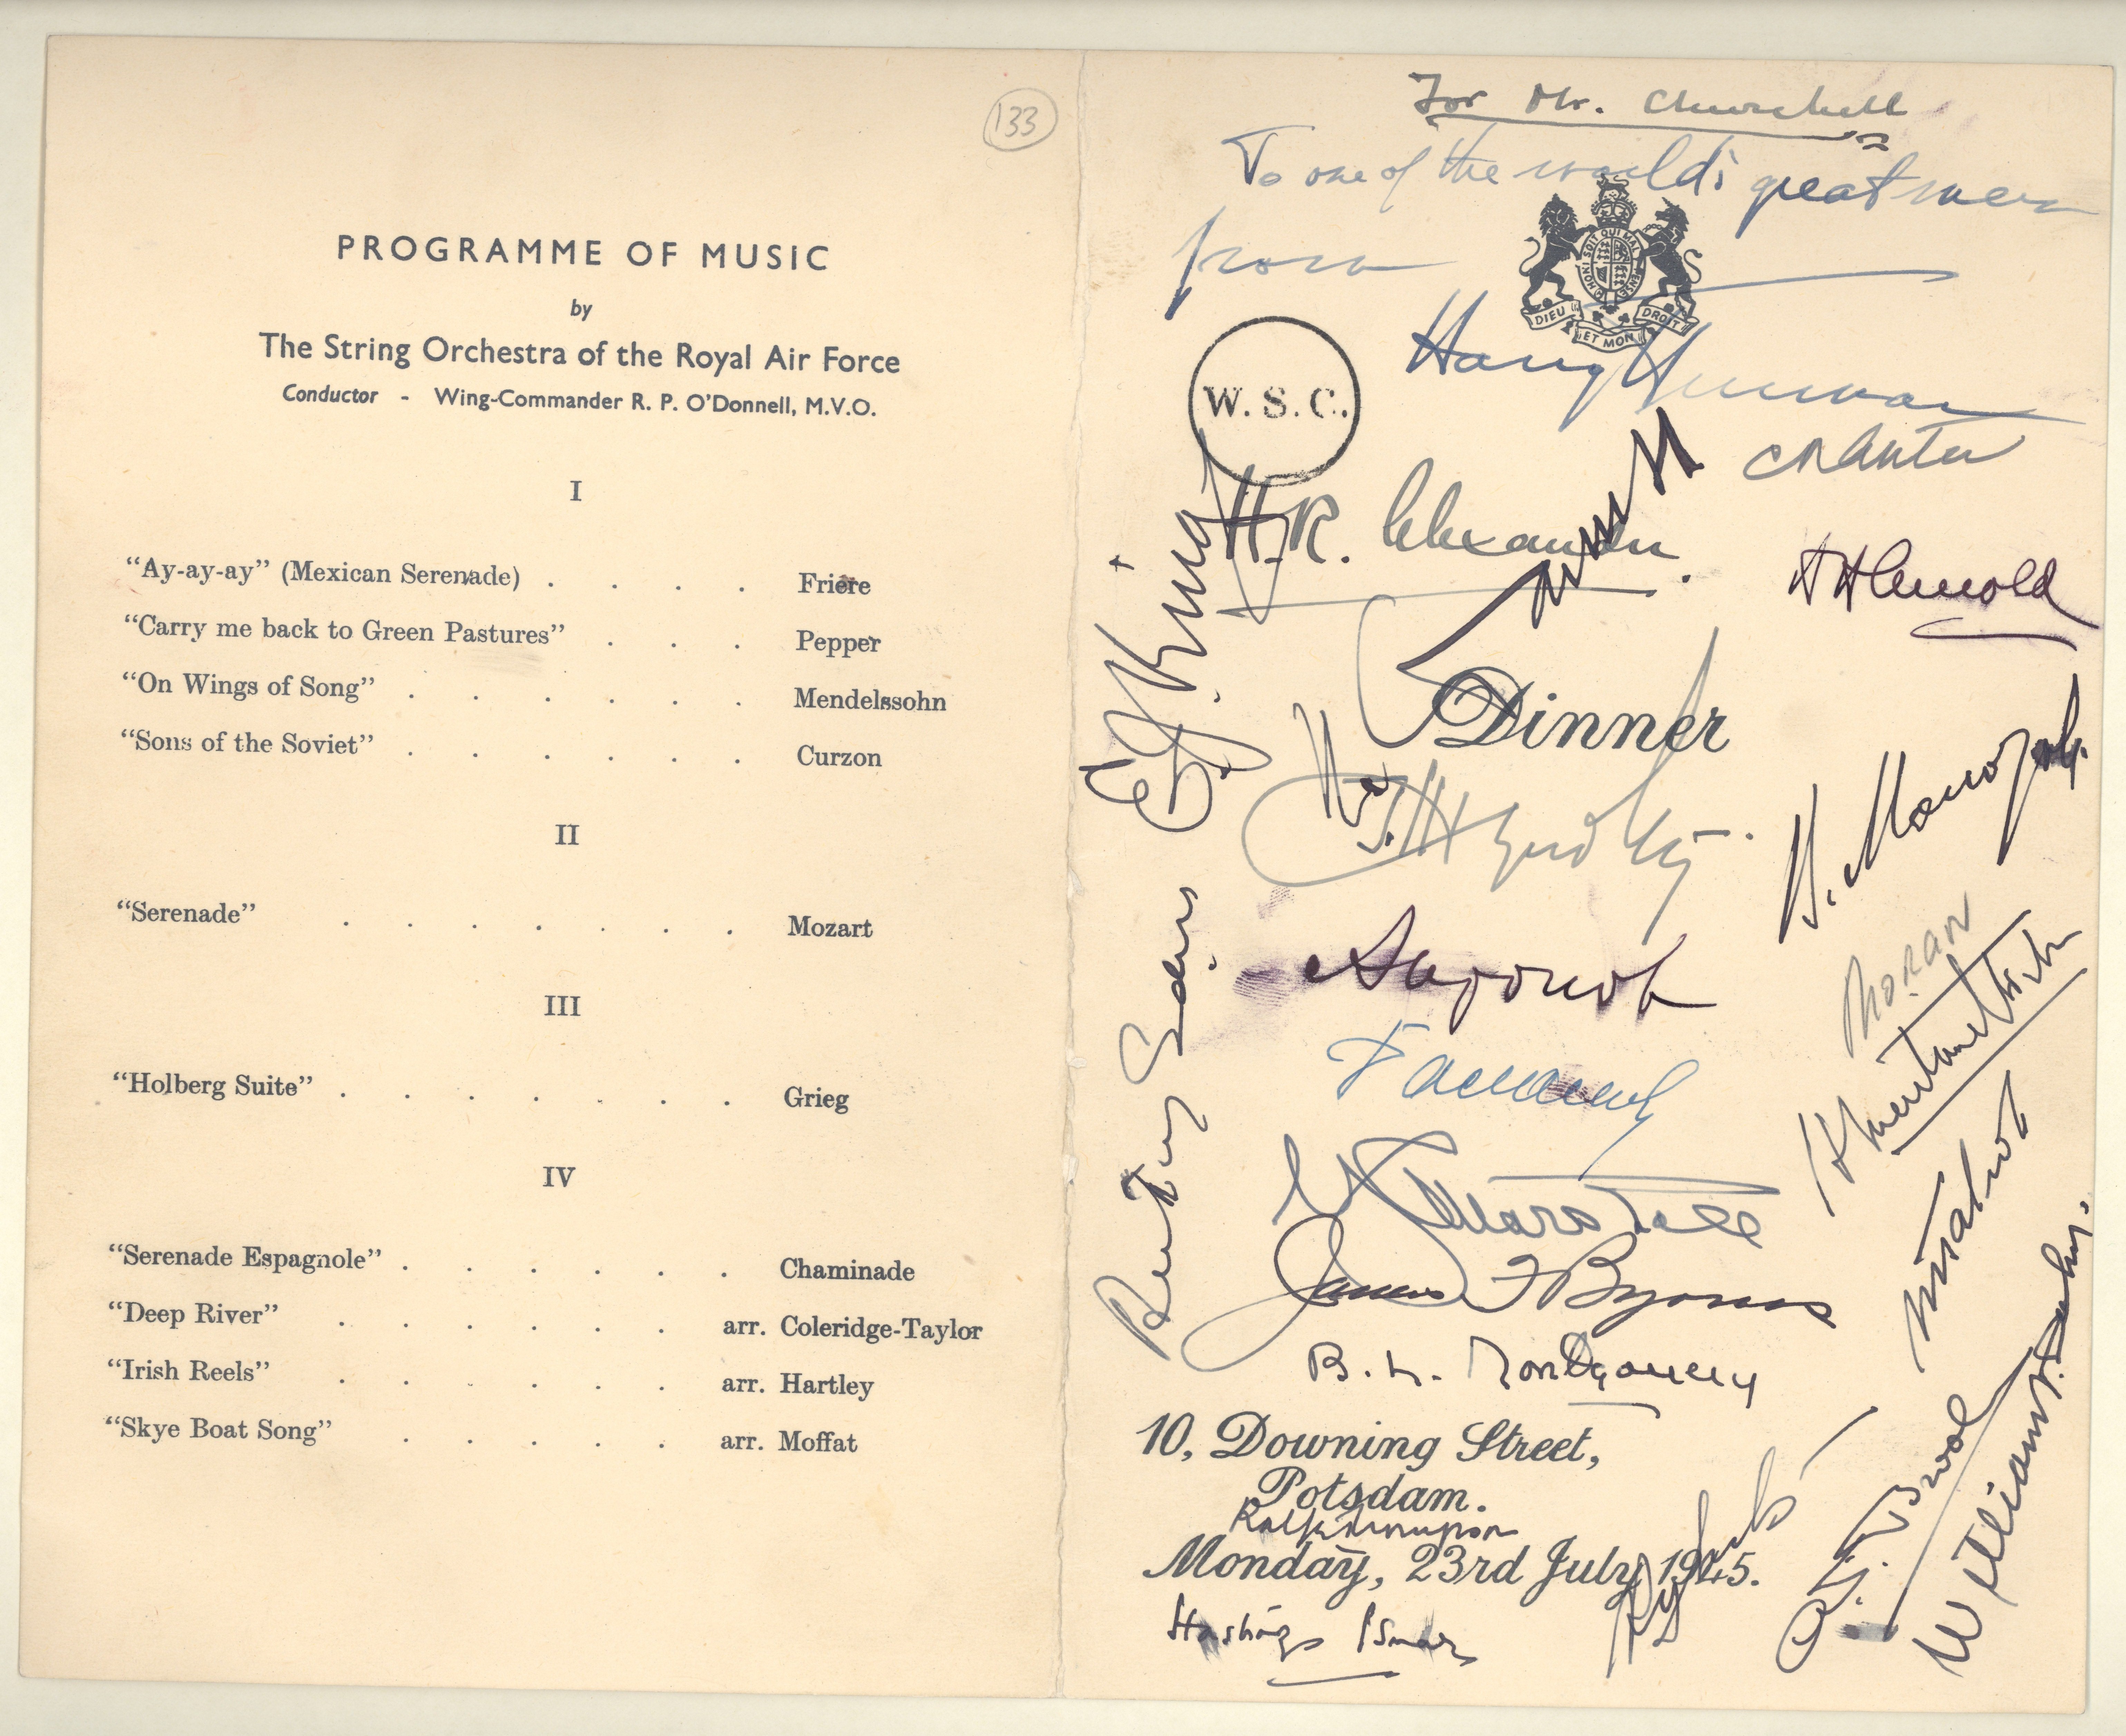 133
PROGRAMME OF MUSIC
by
The String Orchestra of the Royal Air Force
Conductor - Wing-Commander R. P. O'Donnell, M.V.O.
I
“Ay-ay-ay” (Mexican Serenade) . . . . Friere
“Carry me back to Green Pastures” . . . Pepper
“On Wings of Song” . . . . . . Mendelssohn
“Sons of the Soviet” . . . . . . Curzon
II
“Serenade” . . . . . . . Mozart
III
“Holberg Suite” . . . . . . . Grieg
IV
“Serenade Espagnole” . . . . . . Chaminade
“Deep River” . . . . . . arr. Coleridge-Taylor
“Irish Reels” . . . . . . arr. Hartley
“Skye Boat Song” . . . . . arr. Moffat
For Mr. Churchill
To one of the world's great men
from
HONI SOIT QUI MAL Y PENSE
DIEU ET MON DROIT
Harry Truman
W. S. C.
H.R. Alexander.
HHArnold
E J King
Dinner
В. Молотов
Антонов
Moran
G C Marshall
James F Byrnes
B. L. Montgomery
Anthony Eden
William D. Leahy.
10, Downing Street,
Potsdam.
Monday, 23rd July, 1945.
Hastings Ismay